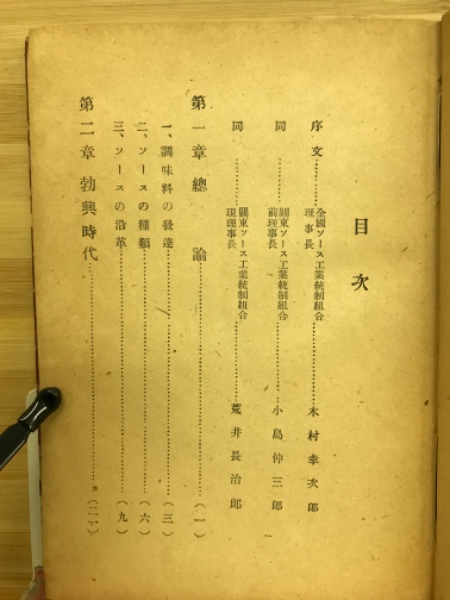 目次
序文……全國ソース工業統制組合理事長……木村幸次郎
同……關東ソース工業統制組合前理事長……小島仲三郎
同……關東ソース工業統制組合現理事長……荒井長治郎
第一章 總論……(一)
一、調味料の發達……(三)
二、ソースの種類……(六)
三、ソースの沿革……(九)
第二章 勃興時代……(二一)